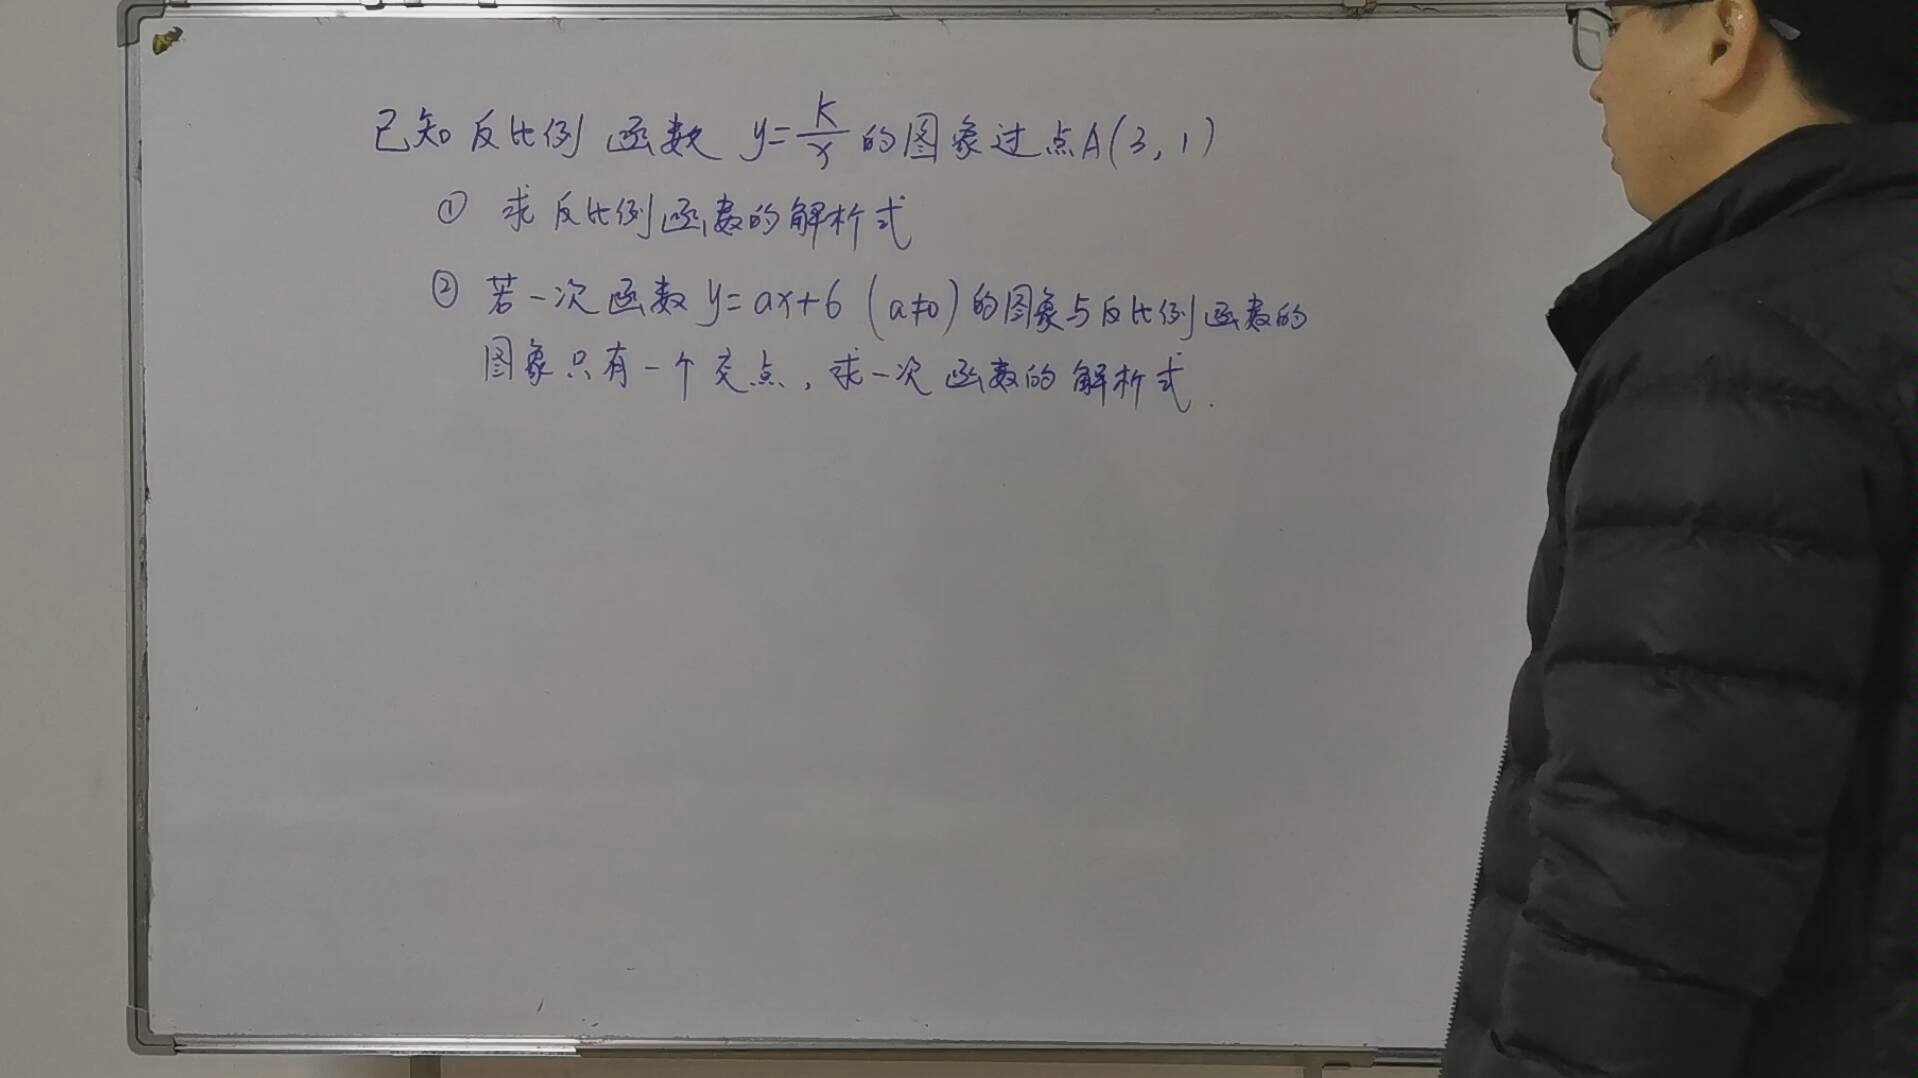 已知反比例函数 y=k/x 的图象过点A(3,1)
① 求反比例函数的解析式
② 若一次函数 y=ax+6 (a≠0)的图象与反比例函数的
图象只有一个交点,求一次函数的解析式.